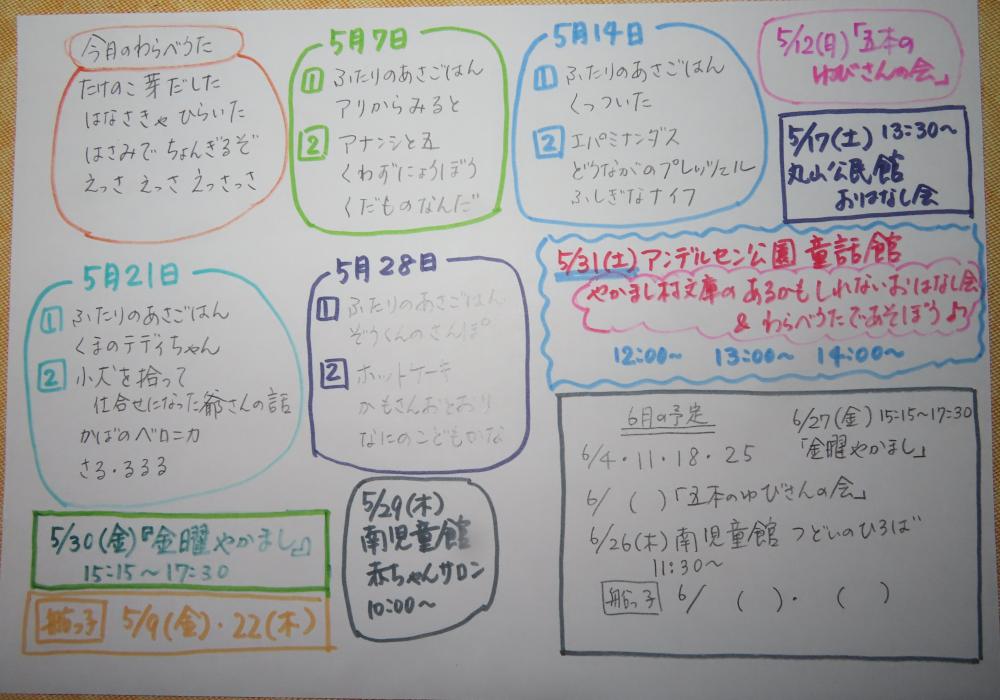 今月のわらべうた
たけのこ 芽だした
はなさきゃ ひらいた
はさみで ちょんぎるぞ
えっさ えっさ えっさっさ
5月7日
1 ふたりのあさごはん
アリからみると
2 アナンシと五
くわずにょうぼう
くだものなんだ
5月14日
1 ふたりのあさごはん
くっついた
2 エパミナンダス
どうながのプレッツェル
ふしぎなナイフ
5/12(月)「五本の
ゆびさんの会」
5/17(土) 13:30~
丸山公民館
おはなし会
5月21日
1 ふたりのあさごはん
くまのテディちゃん
2 小犬を拾って
仕合せになった爺さんの話
かばのベロニカ
さる・るるる
5月28日
1 ふたりのあさごはん
ぞうくんのさんぽ
2 ホットケーキ
かもさんおとおり
なにのこどもかな
5/31(土)アンデルセン公園 童話館
やかまし村文庫の あるかもしれないおはなし会
& わらべうたであそぼうよ♪
12:00~ 13:00~ 14:00~
5/30(金)『金曜やかまし』
15:15~17:30
船っ子 5/9(金)・22(木)
5/29(木)
南児童館
赤ちゃんサロン
10:00~
6月の予定
6/4・11・18・25
6/27(金) 15:15~17:30
「金曜やかまし」
6/ ( )「五本のゆびさんの会」
6/26(木)南児童館 つどいのひろば
11:30~
船っ子 6/ ( )・ ( )